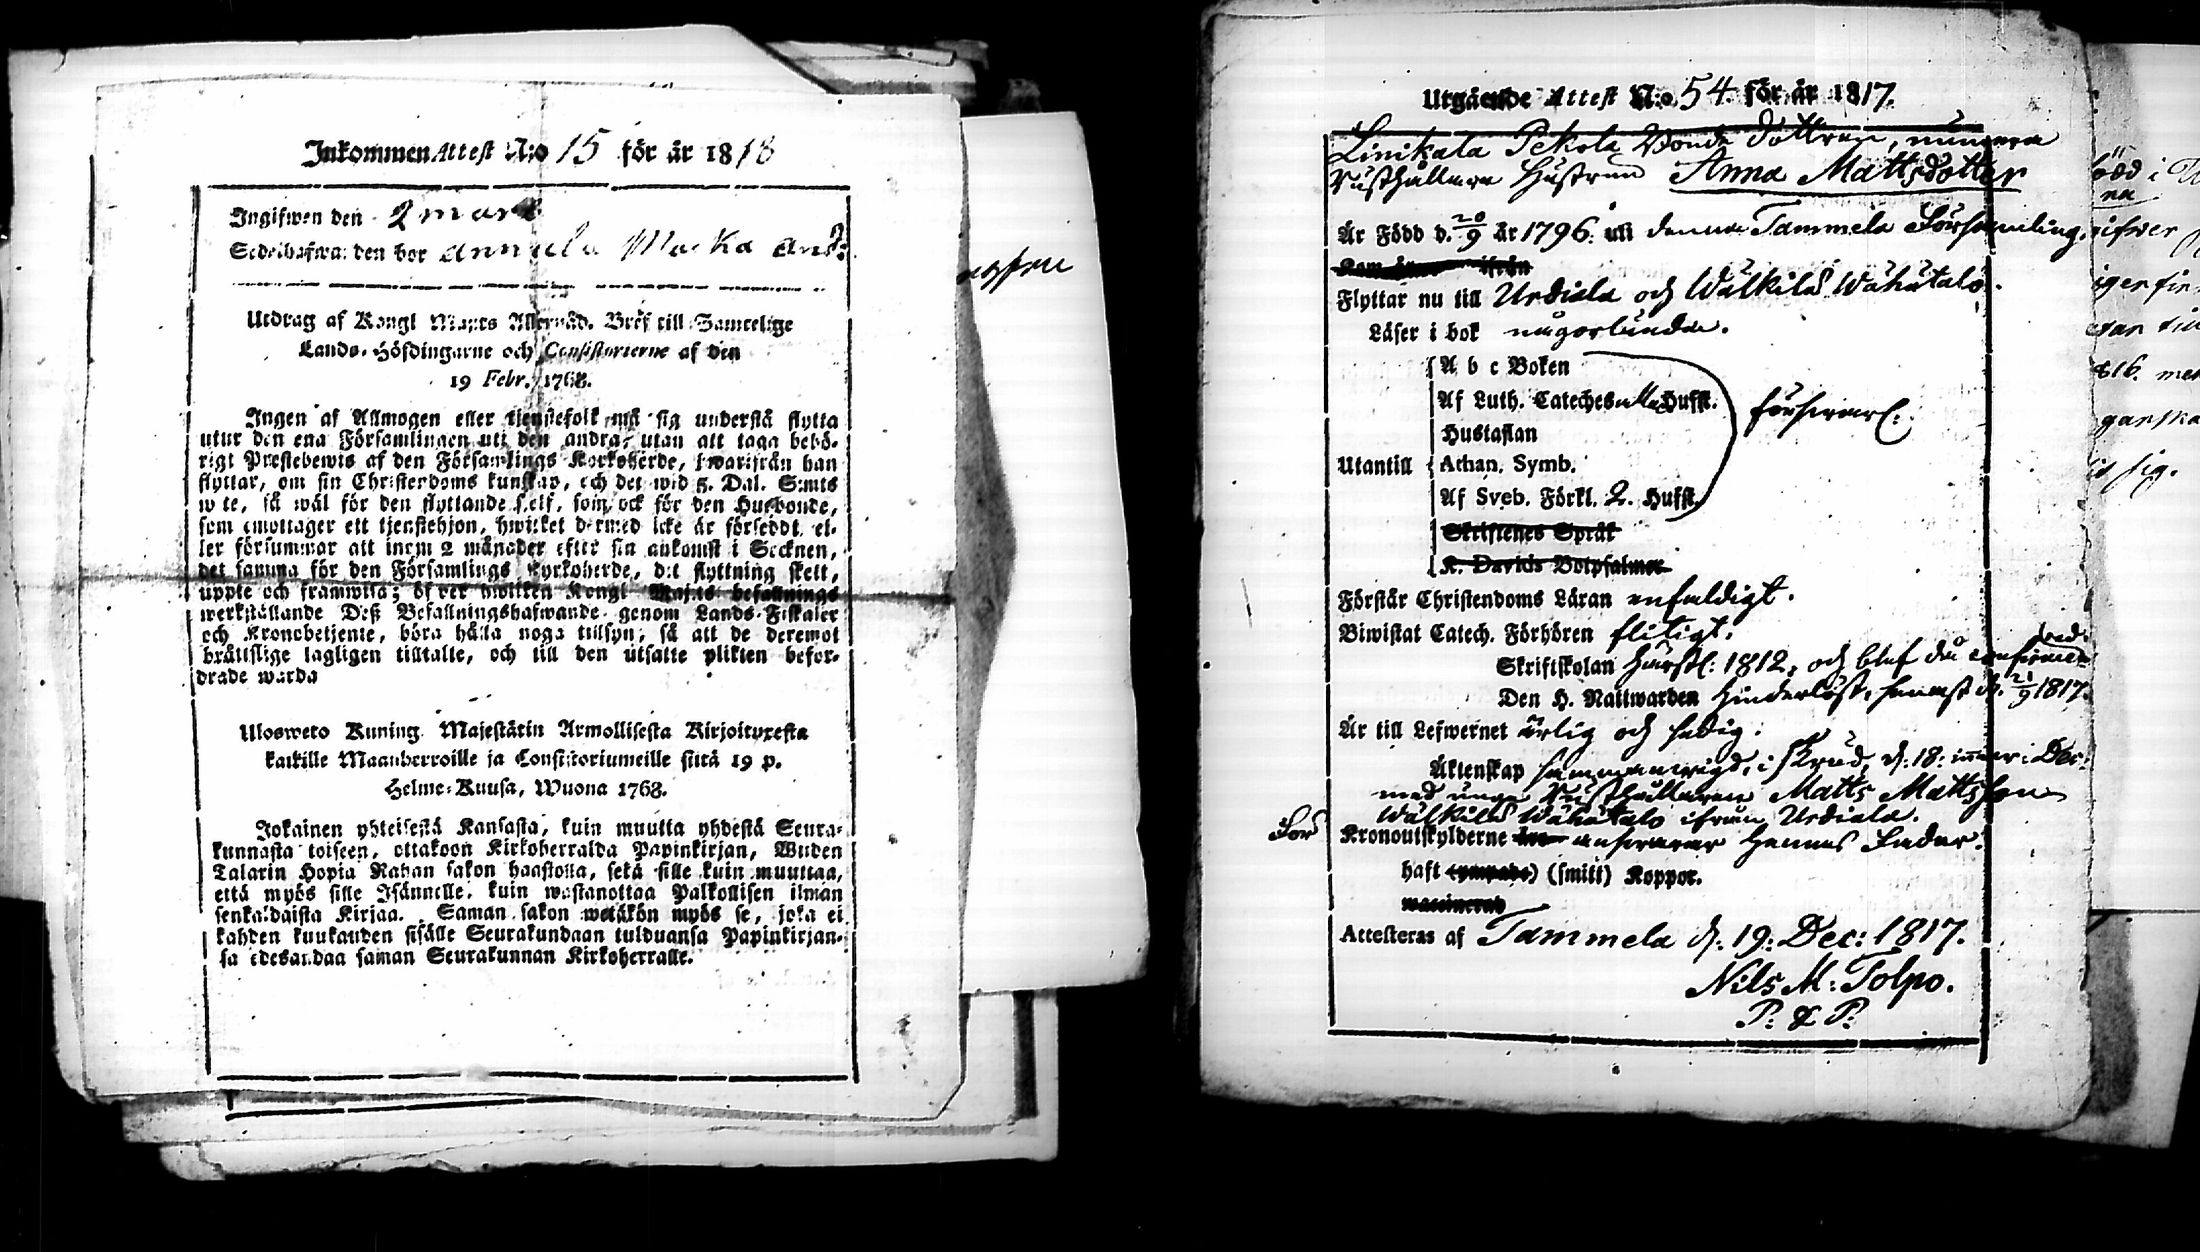 Inkommen Attest N:o 15 för år 1818
Ingifwen den 2 mars
Sedelhafwa: den bor Annula Macka
Utdrag af Kongl Maj:ts Allernåd. Bref till Samtelige
Lands-Höfdingarne och Consistorierne af den
19 Febr. 1768.
Ingen af Allmogen eller tjenstefolk må sig understå flytta
utur den ena Församlingen uti den andra, utan att taga behö-
rigt Prestebewis af den Församlings Kyrkoherde, hwarifrån han
flyttar, om sin Christendoms kunskap, och det wid 5. Dal. S:mts
wite, så wäl för den flyttande self, som ock för den Husbonde,
som emottager ett tjenstehjon, hwilket dermed icke är försedt, el-
ler försummar att inom 2 månader efter sin ankomst i Socknen,
det samma för den Församlings Kyrkoherde, dit flyttning skett,
uppte och framwisa; öfwer hwilken Kongl Maj:ts befallnings
werkställande Deß Befallningshafwande genom Lands-Fiskaler
och Kronobetjente, böra hålla noga tillsyn, så att de deremot
brättslige lagligen tilltalte, och till den utsatte plikten befor-
drade warda
Ulosweto Kuning. Majestätin Armollisesta Kirjoituxesta
kaikille Maanherroille ja Consistoriumeille siitä 19 p.
Helme-Kuusa, Wuona 1768.
Jokainen yhteisestä Kansasta, kuin muutta yhdestä Seura-
kunnasta toiseen, ottakoon Kirkoherralda Papinkirjan, Wiiden
Talarin Hopia Rahan sakon haastolla, sekä sille kuin muuttaa,
että myös sille Isännelle, kuin wastanottaa Palkollisen ilman
senkaldaista Kirjaa. Saman sakon wetäkön myös se, joka ei
kahden kuukauden sisälle Seurakundaan tulduansa Papinkirjan-
sa edesandaa saman Seurakunnan Kirkoherralle.
Utgående Attest N:o 54 för år 1817.
Linikala Pekola Bonde dottren, numera
Rusthållare Hustrun Anna Mattsdotter
Är Född d. 20/9 år 1796. uti denna Tammela Församling.
Kom åter ifrån
Flyttar nu till Urdiala och Wälkilä Wähätalo.
Läser i bok någorlunda.
A b c Boken
Af Luth. Cateches alla Hufst.
Hustaflan
Utantill Athan. Symb.
Af Sveb. Förkl. 2. Hufst.
försvarl:
Skriftenes Språk
K. Davids Botpsalmer
Förstår Christendoms Läran enfaldigt.
Biwistat Catech. Förhören flitigt.
Skriftskolan härstl: 1812, och blef då confirme-
rad.
Den H. Nattwarden hinderlöst, senast d. 21/9 1817.
Är till Lefwernet ärlig och sedig.
Äktenskap sammanwigd, i skrud, d: 18: Dec:
med unge Rusthållaren Matts Mattsson
Wälkilä Wähätalo ifrån Urdiala.
För Kronoutskylderne answarar Hennes Fader.
haft (ympade) (smitt) Koppor.
waccinerad
Attesteras af Tammela d: 19: Dec: 1817.
Nils M: Tolpo.
P: & P: